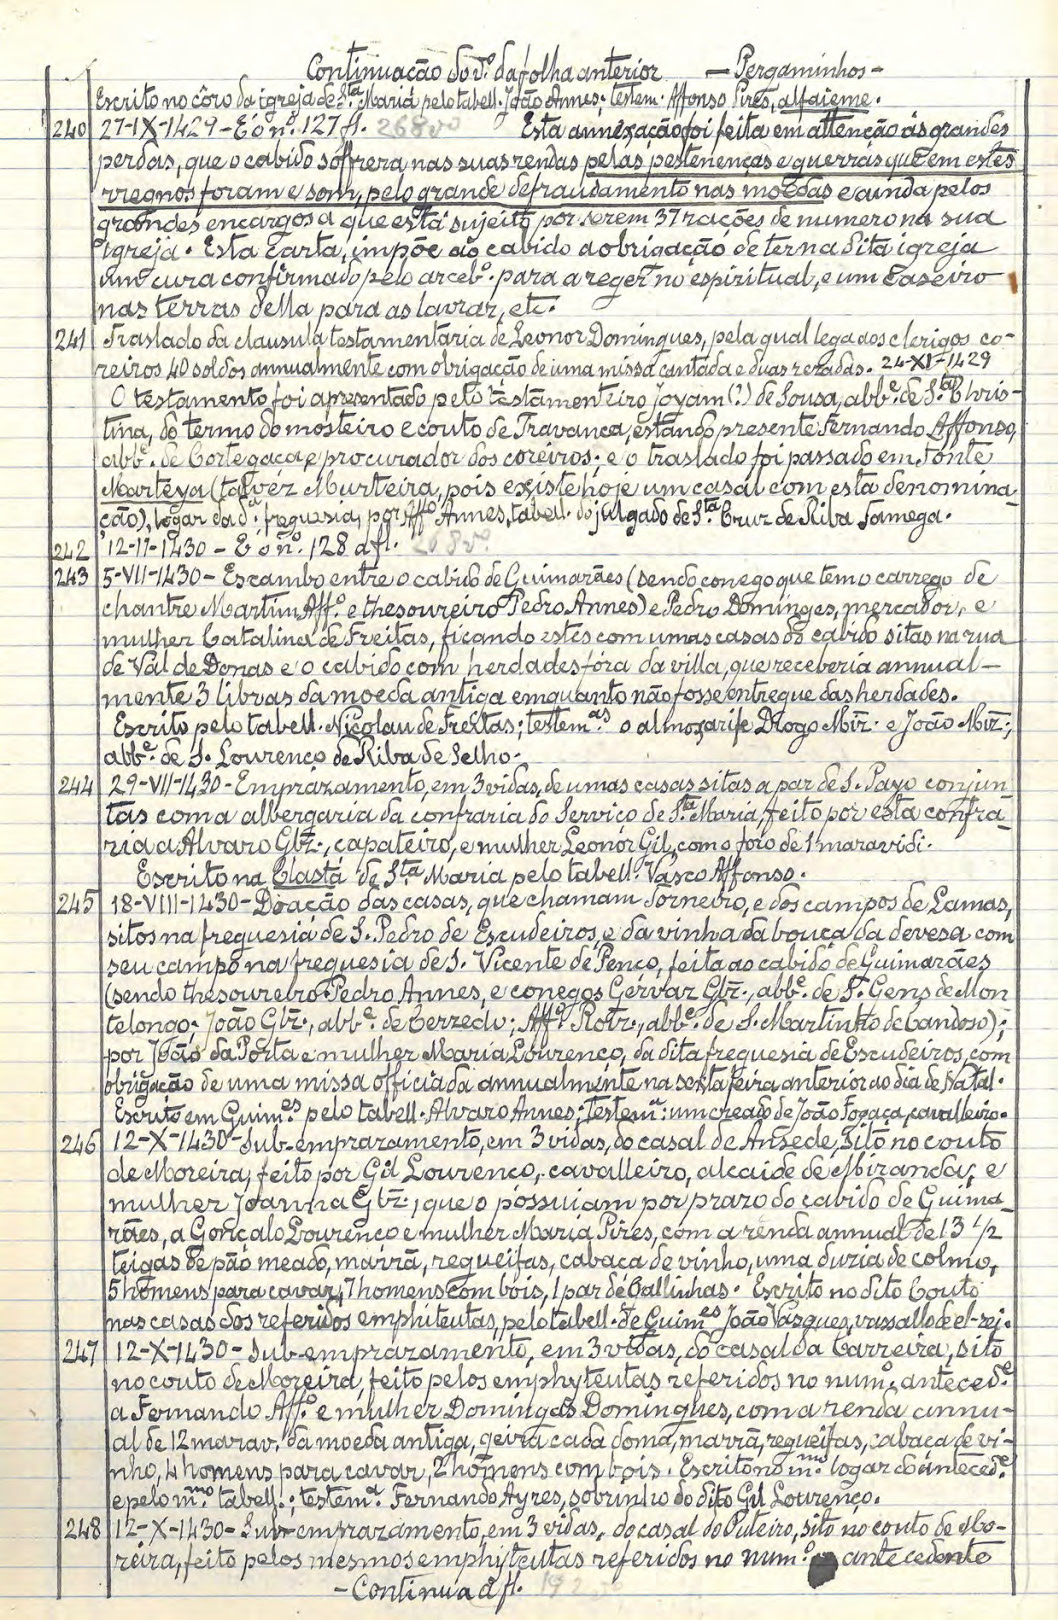 Continuação do v.º da folha anterior — Pergaminhos —
Escrito no côro da igreja de S.ta Maria pelo tabell. João Annes; testem. Affonso Pires, alfaieme.
240 27-IX-1429 - É o n.º 127 fl. 268 vº Esta annexação foi feita em attenção ás grandes
perdas, que o cabido soffrera nas suas rendas pelas pestenenças e guerras que em estes
rregnos foram e som, pelo grande defraudamento nas moedas e ainda pelos
grandes encargos a que está sujeito por serem 37 rações de numero na sua
igreja. Esta carta, impõe ao cabido a obrigação de ter na dita igreja
um cura confirmado pelo arceb.º para a reger no espiritual, e um caseiro
nas terras della para as lavrar, etc.
241 Traslado da clausula testamentaria de Leonor Domingues, pela qual lega aos clerigos co-
reiros 40 soldos annualmente com obrigação de uma missa cantada e duas rezadas. 24-XI-1429
O testamento foi apresentado pelo testamenteiro Joyam (?) de Sousa, abb.e de S.ta Chris-
tina, do termo do mosteiro e couto de Travanca, estando presente Fernando Affonso,
abb.e de Cortegaça e procurador dos coreiros; e o traslado foi passado em Fonte
Marteya (talvez Murteira, pois existe hoje um casal com esta denomina-
ção), logar da d.ª freguesia, por Aff.º Annes, tabell. do julgado de S.ta Cruz de Riba Tamega.
242 12-II-1430 - É o n.º 128 a fl. 268 vº.
243 5-VII-1430 - Escambo entre o cabido de Guimarães (sendo conego que tem o carrego de
chantre Martim Aff.º e thesoureiro Pedro Annes) e Pedro Dominges, mercador, e
mulher Catalina de Freitas, ficando estes com umas casas do cabido sitas na rua
de Val de Donas e o cabido com herdades fóra da villa, que receberia annual-
mente 3 libras da moeda antiga emquanto não fosse entregue das herdades.
Escrito pelo tabell. Nicolau de Freitas; testem.as o almoxarife Diogo Miz. e João Miz.,
abb.e de S. Lourenço de Riba de Selho.
244 29-VII-1430 - Emprazamento, em 3 vidas, de umas casas sitas a par de S. Payo conjun-
tas com a albergaria da confraria do Serviço de S.ta Maria, feito por esta confra-
ria a Alvaro Glz., çapateiro, e mulher Leonor Gil, com o foro de 1 maravidi.
Escrito na Clastá de S.ta Maria pelo tabell. Vasco Affonso.
245 18-VIII-1430 - Doação das casas, que chamam Torneiro, e dos campos de Lamas,
sitos na freguesia de S. Pedro de Escudeiros, e da vinha da bouça da devesa com
seu campo na freguesia de S. Vicente de Penço, feita ao cabido de Guimarães
(sendo thesoureiro Pedro Annes, e conegos Gervaz Glz., abb.e de S. Gens de Mon
telongo; João Glz., abb.e de Cerzedo; Aff.º Rotz., abb.e de S. Martinho de Candoso);
por João da Porta e mulher Maria Lourenço, da dita freguesia de Escudeiros, com
obrigação de uma missa officiada annualmente na sexta feira anterior ao dia de Natal.
Escrito em Guim.es pelo tabell. Alvaro Annes; testem.ª: um creado de João Fogaça, cavalleiro.
246 12-X-1430 - Sub-emprazamento, em 3 vidas, do casal de Ansede, sito no couto
de Moreira, feito por Gil Lourenço, cavalleiro, alcaide de Miranda, e
mulher Joanna Glz., que o possuiam por prazo do cabido de Guima-
rães, a Gonçalo Lourenço e mulher Maria Pires, com a renda annual de 13 1/2
teigas de pão meado, marrã, regueifas, cabaça de vinho, uma duzia de colmo,
5 homens para cavar, 7 homens com bois, 1 par de Gallinhas. Escrito no dito Couto
nas casas dos referidos emphiteutas, pelo tabell. de Guim.es João Vasques, vassallo de el-rei.
247 12-X-1430 - Sub-emprazamento, em 3 vidas, do casal da Carreira, sito
no couto de Moreira, feito pelos emphyteutas referidos no num.º anteced.e
a Fernando Aff.º e mulher Domingas Domingues, com a renda annu-
al de 12 marav. da moeda antiga, geira cada doma, marrã, regueifas, cabaça de vi-
nho, 4 homens para cavar, 2 homens com bois. Escrito no m.mo logar do anteced.e
e pelo m.mo tabell.; testem.ª Fernando Ayres, sobrinho do dito Gil Lourenço.
248 12-X-1430 - Sub-emprazamento, em 3 vidas, do casal do Outeiro, sito no couto de Mo-
reira, feito pelos mesmos emphyteutas referidos no num.º antecedente
- Continua a fl.